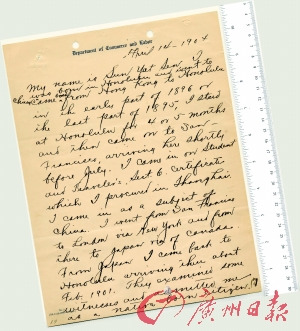 Department of Commerce and Labor
Apr 14-1904
My name is Sun Yat Sen I
was born in Honolulu and went to
China came from Hong Kong to Honolulu
in the early part of 1896 or
the last part of 1895, I stayed
at Honolulu for 4 or 5 months
and then came on to San
Francisco, arriving here shortly
before July. I came in on Student
and Traveler's Sect 6. Certificate
which I procured in Shanghai
I came in as a subject of
China. I went from San Francisco
to London via New York and from
there to Japan via of Canada.
From Japan I came back to
Honolulu arriving there about
Feb. 1901. They examined some
witnesses and admitted me
as a native born citizen
廣州日报